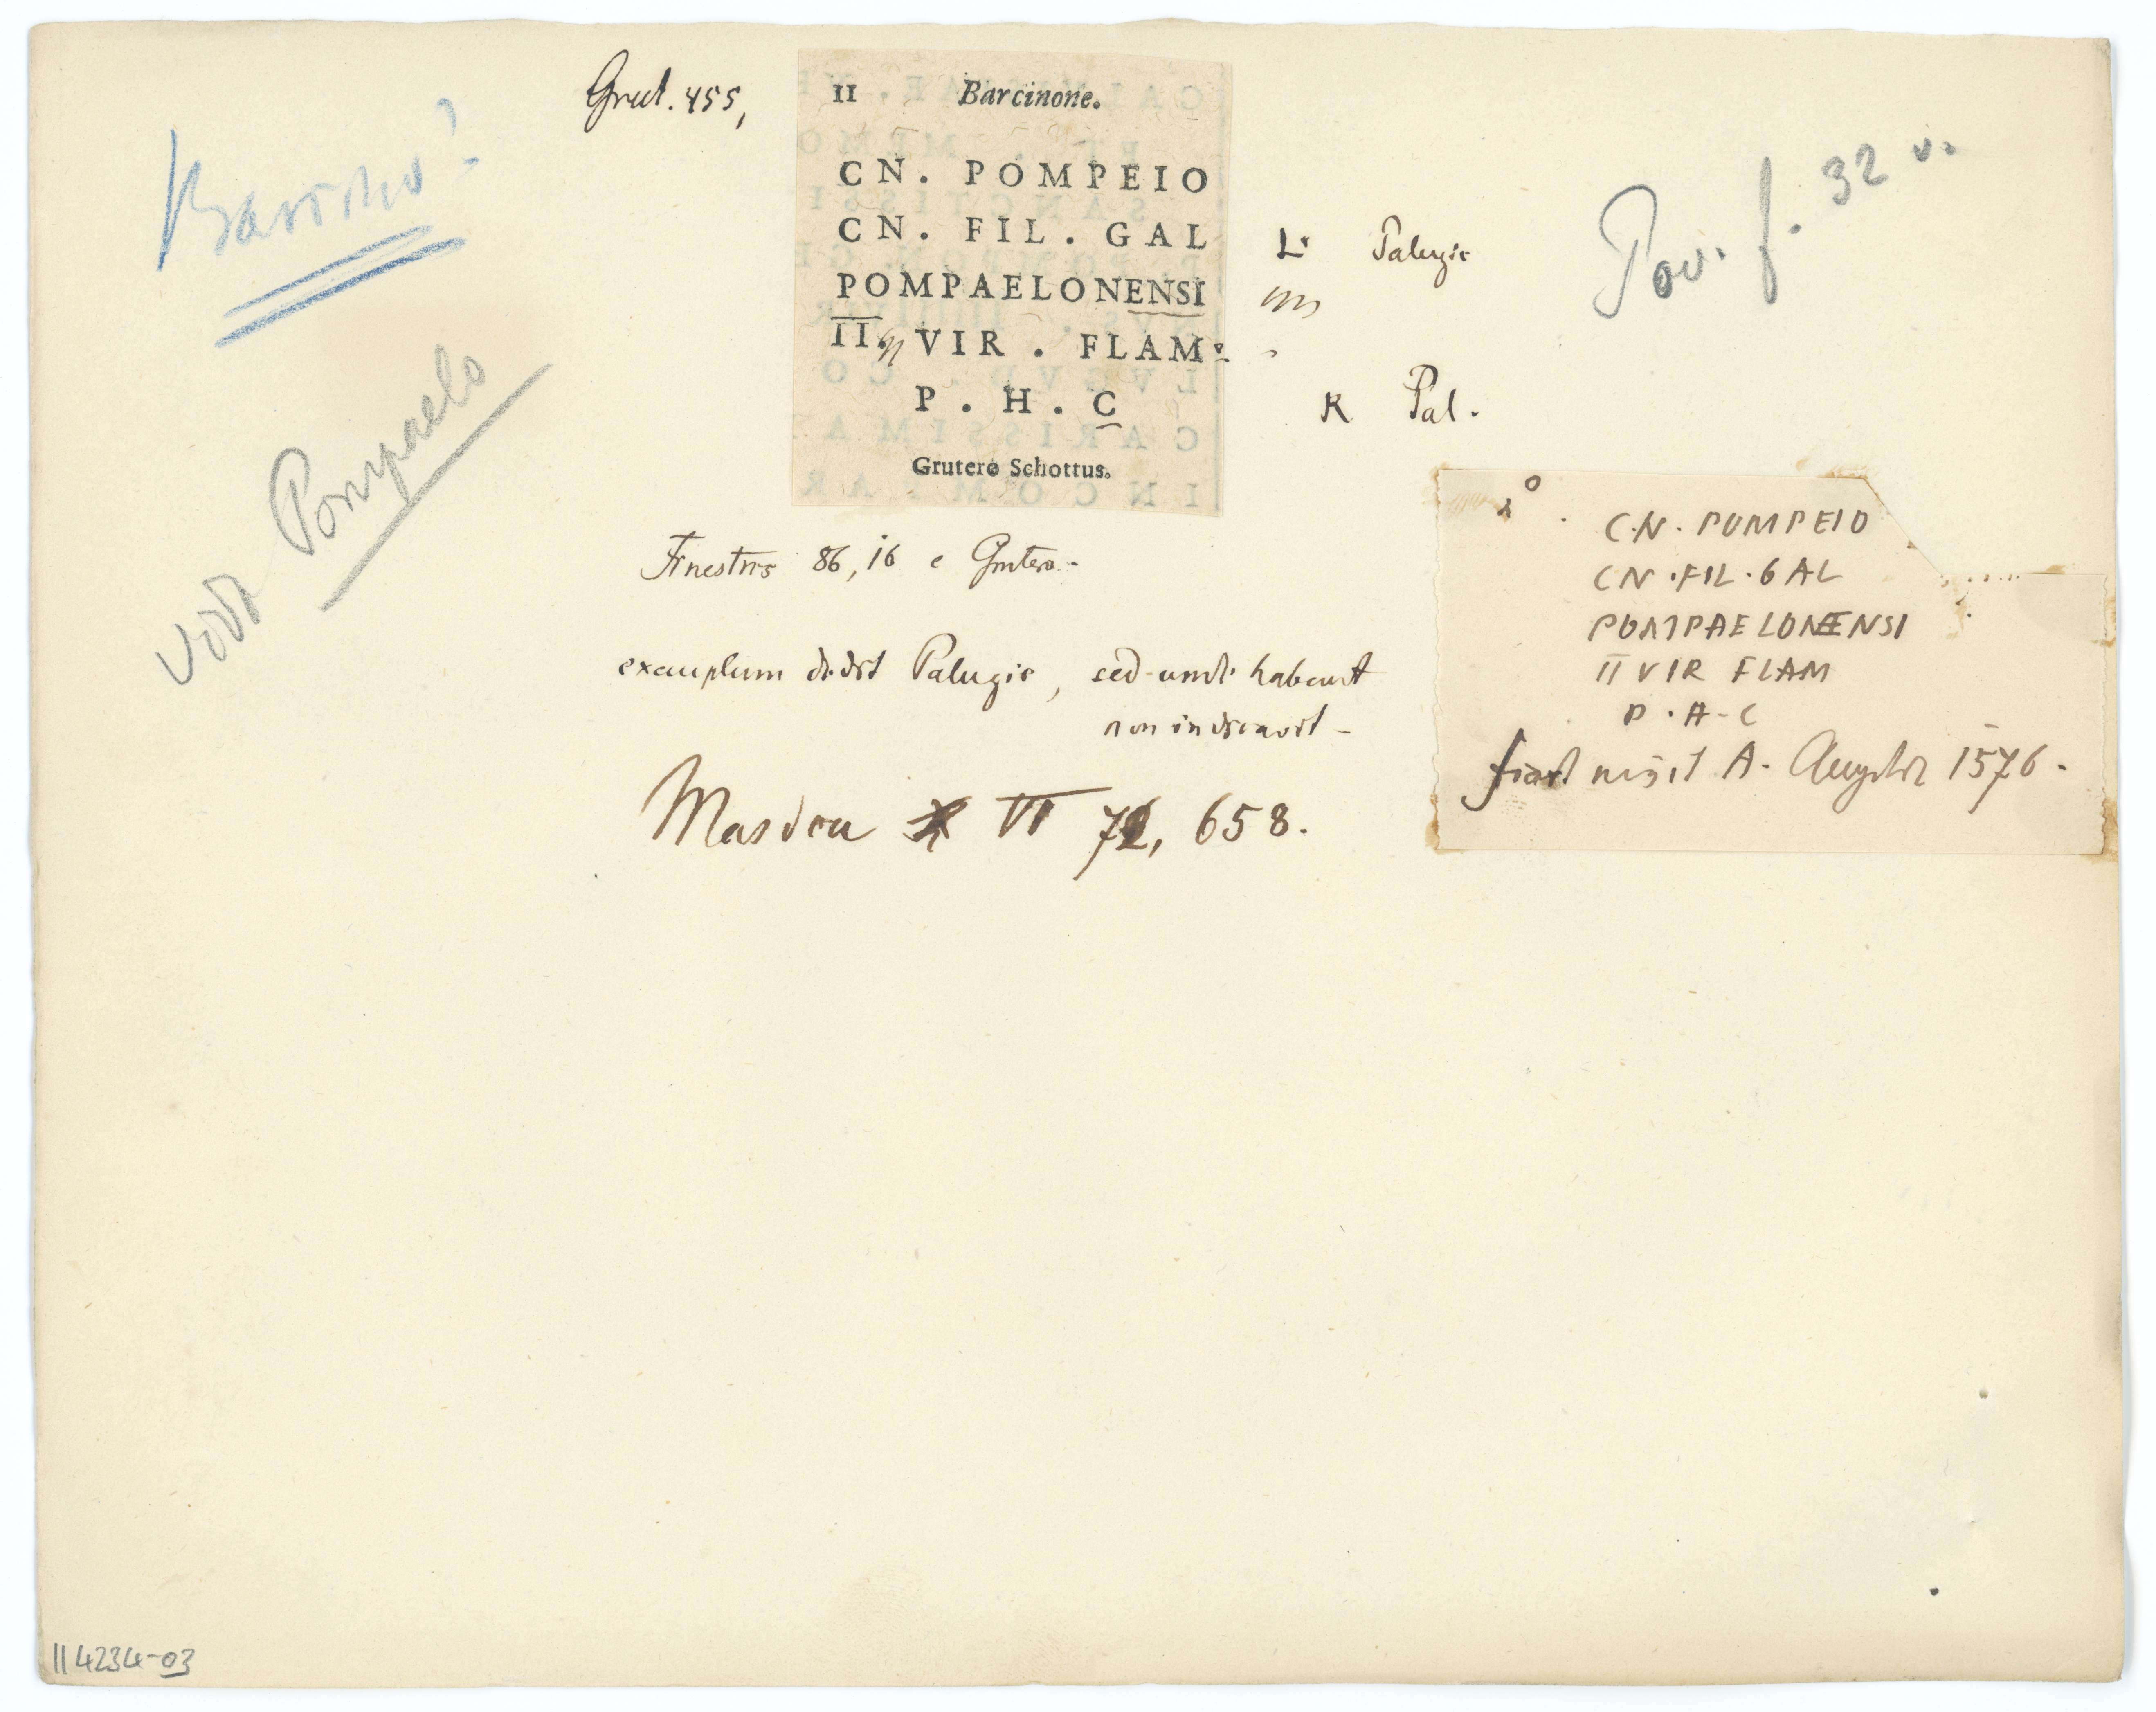 Grut. 455,
11 Barcinone.
CN. POMPEIO
CN. FIL. GAL
POMPAELONENSI
II. VIR. FLAM
P. H. C
Gruterø Schottus.
L Palugie
K Pal.
Barcino?
Pompaelo
Pov. f. 32 v.
Finestres 86, 16 e Grutero.
exemplum dedit Palugie, sed unde habeat
non indicavit -
Masdeu VI 72, 658.
CN. POMPEIO
CN. FIL. GAL
POMPAELONENSI
II VIR FLAM
P. H. C
misit A. Augustin 1576.
II 4234-03